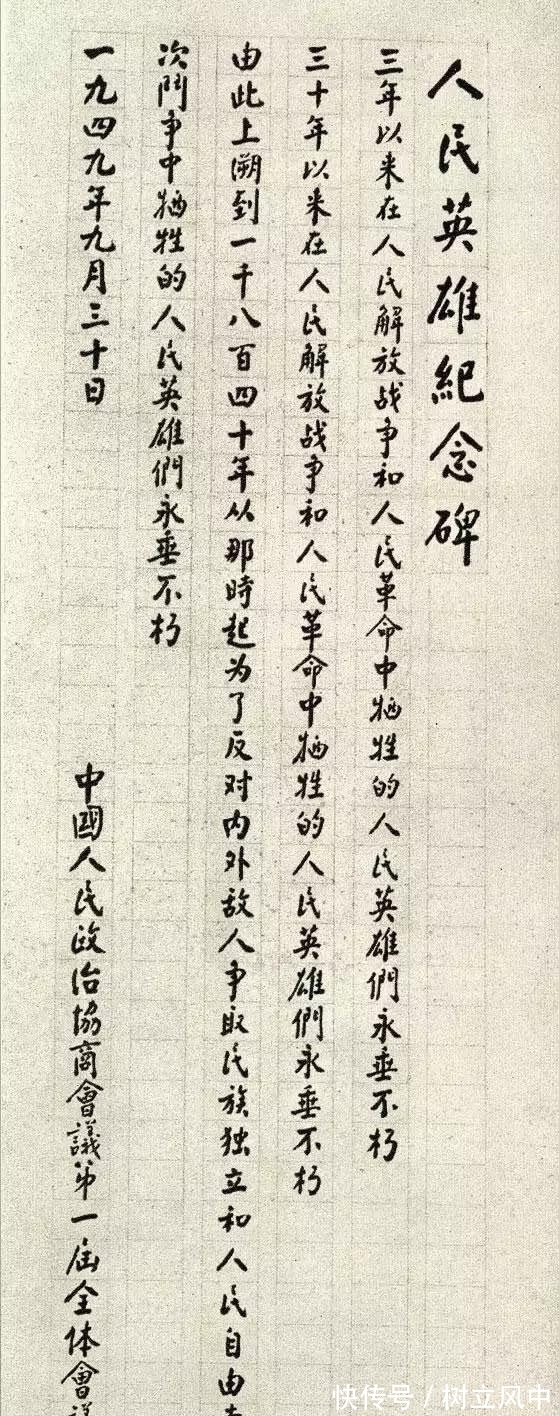 人民英雄紀念碑
三年以来在人民解放战争和人民革命中牺牲的人民英雄們永垂不朽
三十年以来在人民解放战争和人民革命中牺牲的人民英雄們永垂不朽
由此上溯到一千八百四十年从那時起为了反对内外敌人争取民族独立和人民自由
次鬥争中牺牲的人民英雄們永垂不朽
一九四九年九月三十日
中國人民政治協商會議第一届全体會
快传号/树立风中